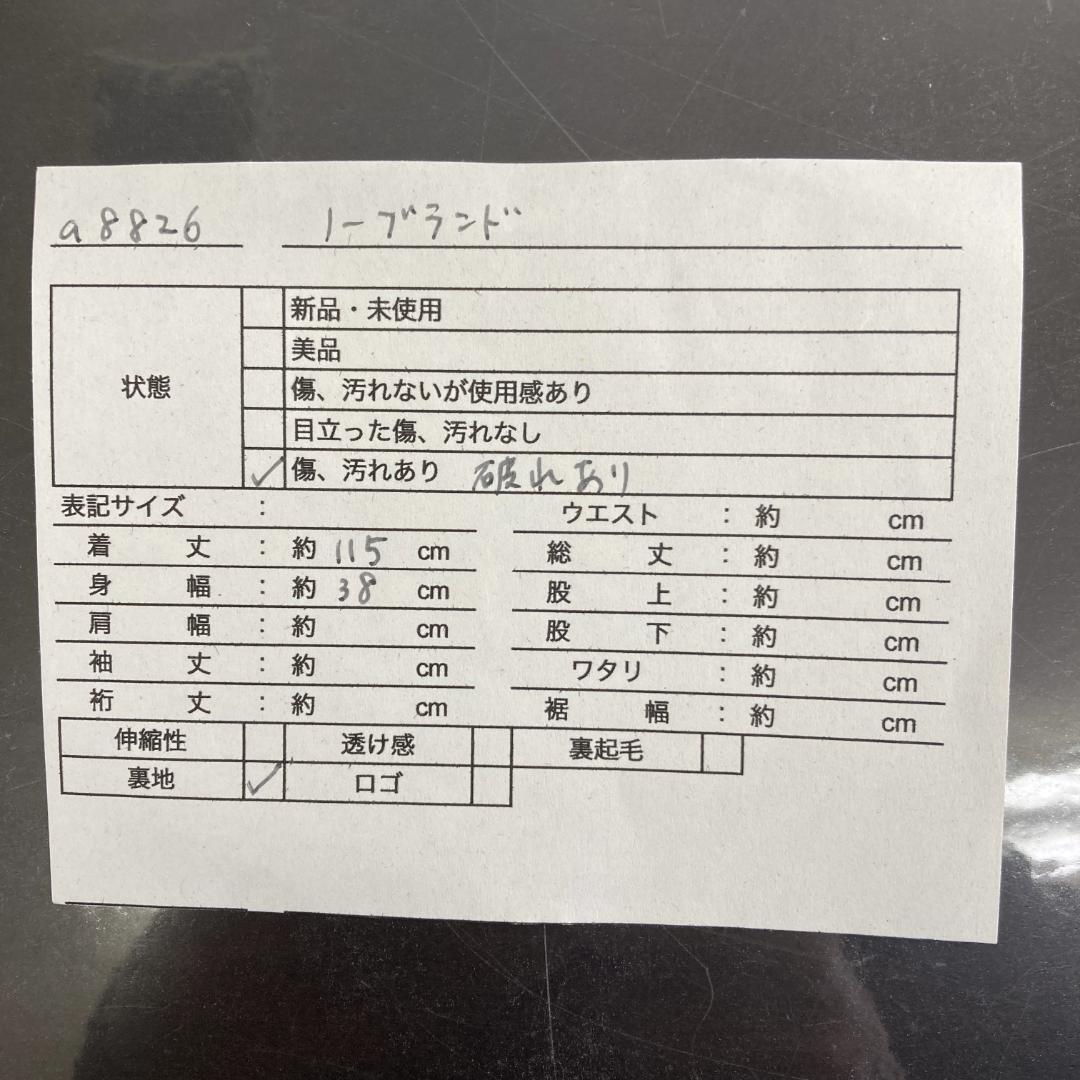 a8826 ノーブランド
新品・未使用
美品
状態 傷、汚れないが使用感あり
目立った傷、汚れなし
✓ 傷、汚れあり 破れあり
表記サイズ : ウエスト : 約 cm
着丈 : 約 115 cm 総丈 : 約 cm
身幅 : 約 38 cm 股上 : 約 cm
肩幅 : 約 cm 股下 : 約 cm
袖丈 : 約 cm ワタリ : 約 cm
裄丈 : 約 cm 裾幅 : 約 cm
伸縮性 透け感 裏起毛
裏地 ✓ ロゴ